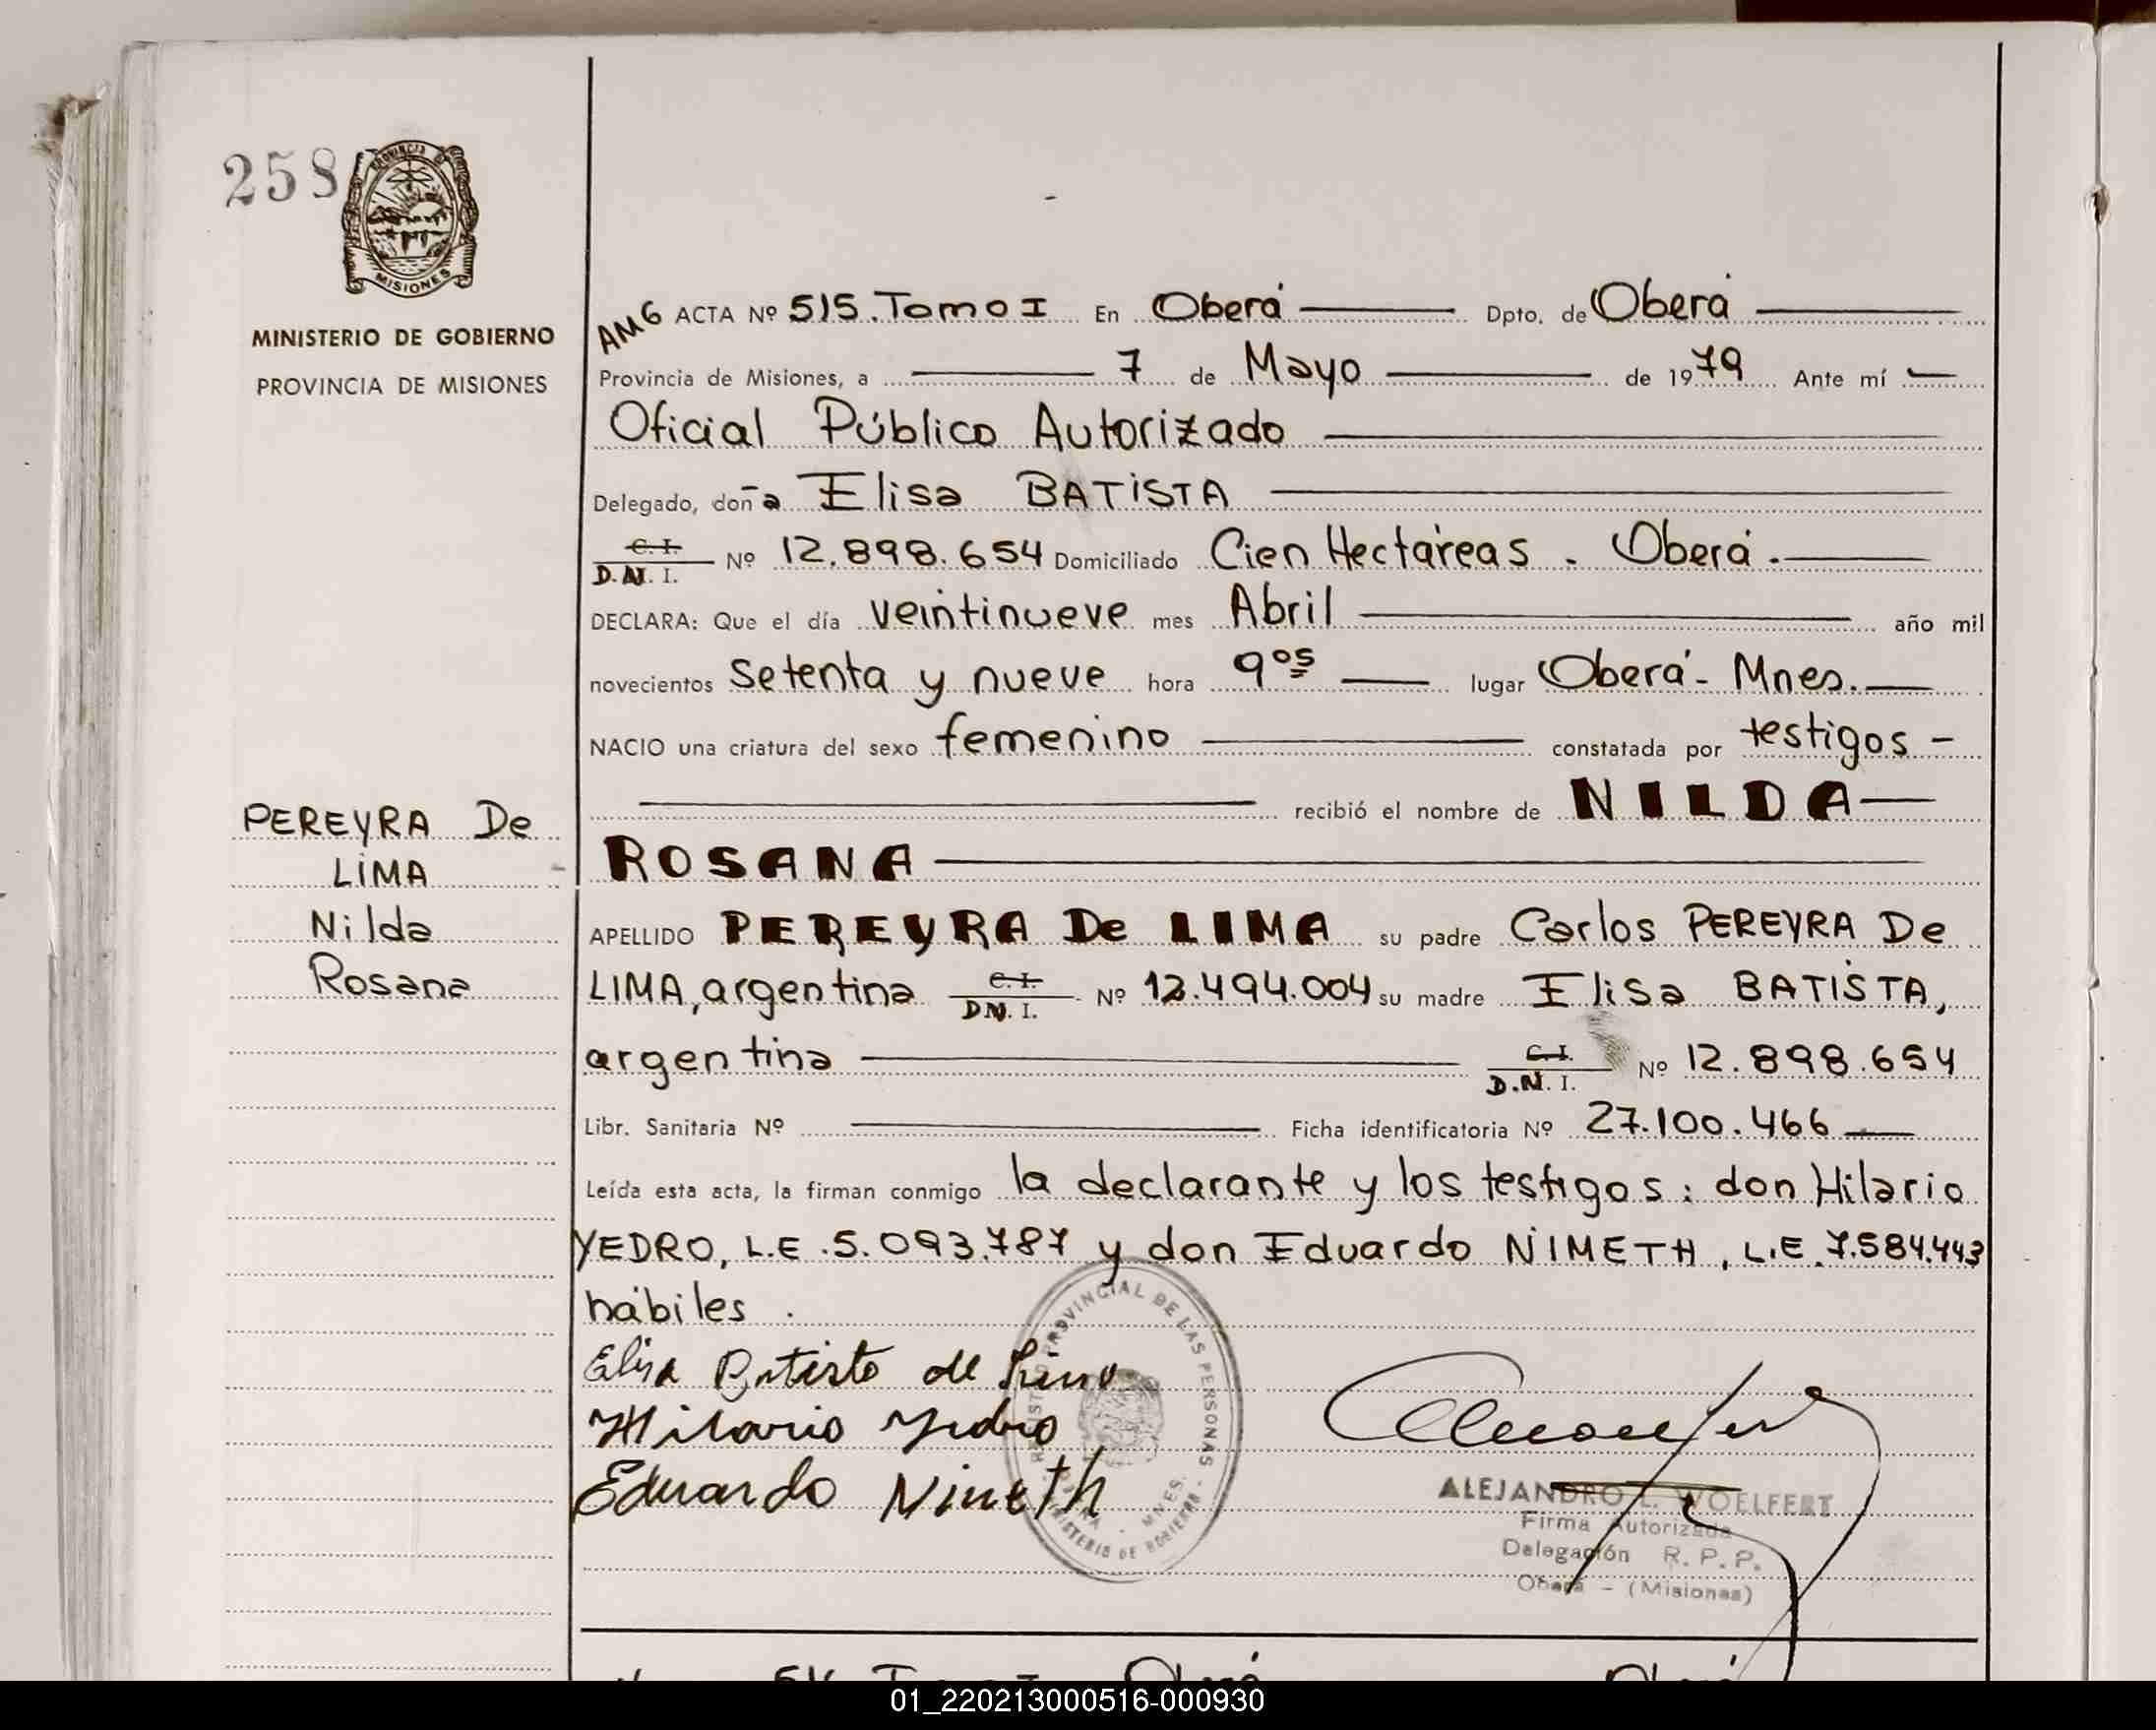 258
PROVINCIA DE
MISIONES
MINISTERIO DE GOBIERNO
PROVINCIA DE MISIONES
PEREYRA De
LIMA
Nilda
Rosana
AMG ACTA Nº 515. Tomo I En Oberá Dpto. de Oberá
Provincia de Misiones, a 7 de Mayo de 1979 Ante mí
Oficial Público Autorizado
Delegado, doña Elisa BATISTA
C. I.
D.N.I. Nº 12.898.654 Domiciliado Cien Hectáreas . Oberá.
DECLARA: Que el día veintinueve mes Abril año mil
novecientos setenta y nueve hora 9 05 lugar Oberá - Mnes.
NACIO una criatura del sexo femenino constatada por testigos -
recibió el nombre de NILDA
ROSANA
APELLIDO PEREYRA De LIMA su padre Carlos PEREYRA De
LIMA, argentina C. I. D.N.I. Nº 12.494.004 su madre Elisa BATISTA,
argentina C. I. D.N.I. Nº 12.898.654
Libr. Sanitaria Nº Ficha identificatoria Nº 27.100.466
Leída esta acta, la firman conmigo la declarante y los testigos: don Hilario
YEDRO, L.E. 5.093.787 y don Eduardo NIMETH, L.E. 7.584.443
hábiles.
Elisa Batista de Lima
Hilario Yedro
Eduardo Nimeth
REGISTRO PROVINCIAL DE LAS PERSONAS -
MINISTERIO DE GOBIERNO -
OBERA - MNES.
ALEJANDRO L. WOELFERT
Firma Autorizada
Delegación R. P. P.
Oberá - (Misiones)
01_220213000516-000930